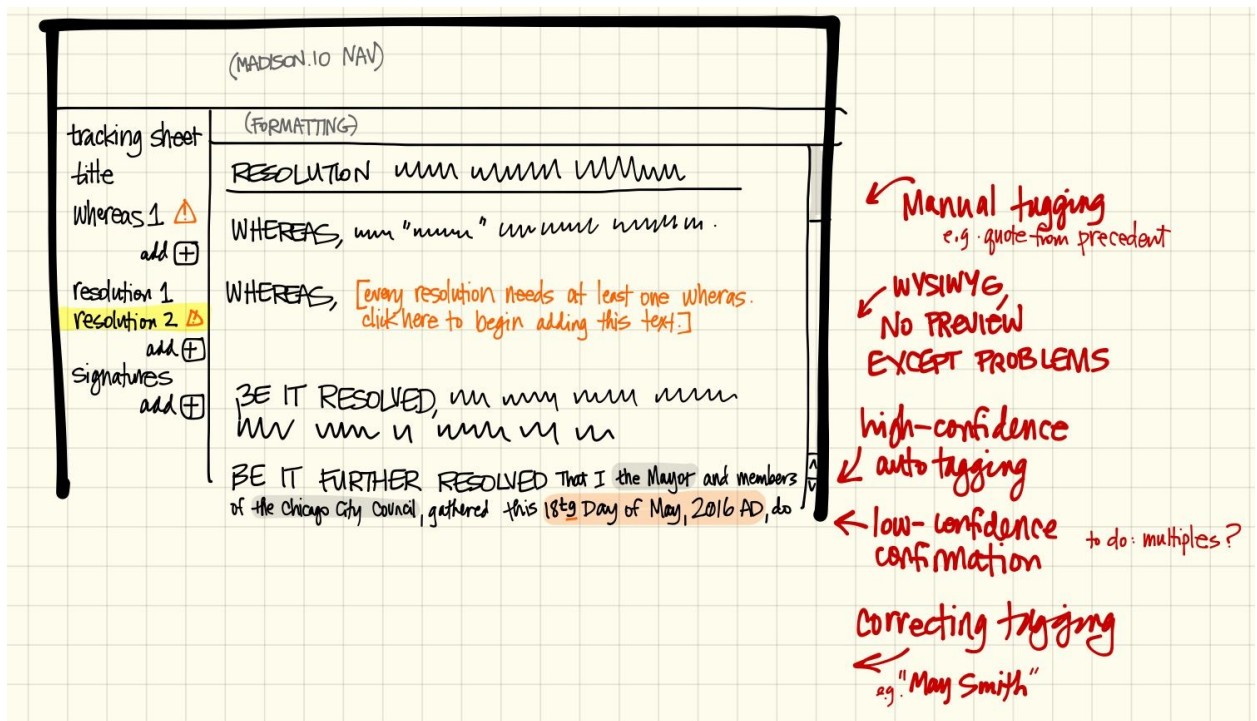 (MADISON.IO NAV)
tracking sheet
title
whereas 1
add +
resolution 1
resolution 2
add +
signatures
add +
(FORMATTING)
RESOLUTION
WHEREAS, " "
WHEREAS, [every resolution needs at least one wheras.
click here to begin adding this text.]
BE IT RESOLVED,
BE IT FURTHER RESOLVED That I the Mayor and members
of the Chicago City Council, gathered this 18tg Day of May, 2016 AD, do
Manual tagging
e.g. quote from precedent
WYSIWYG,
NO PREVIEW
EXCEPT PROBLEMS
high-confidence
auto tagging
low-confidence
confirmation
to do: multiples?
correcting tagging
eg. "May Smith"